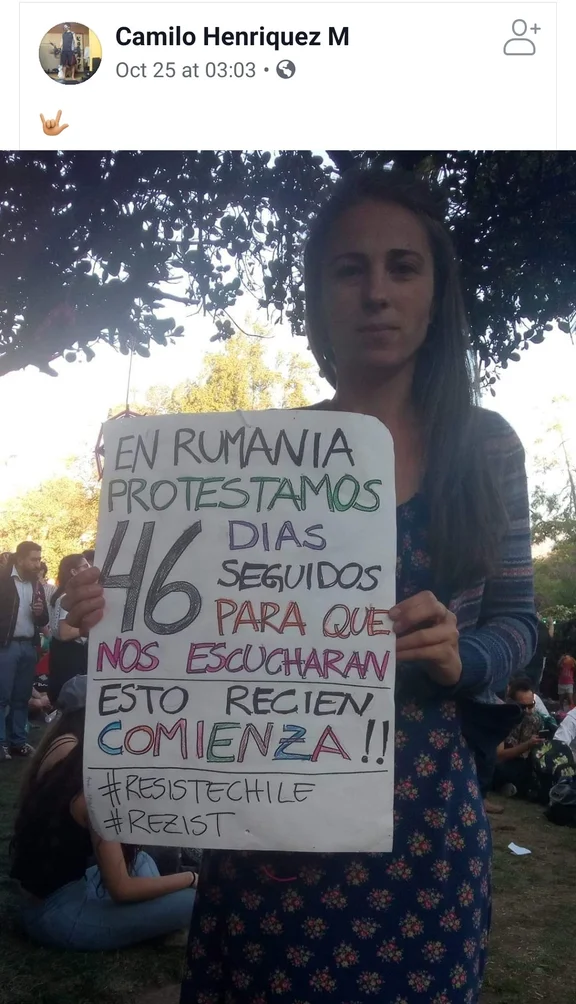 Camilo Henriquez M
Oct 25 at 03:03
EN RUMANIA
PROTESTAMOS
46 DIAS
SEGUIDOS
PARA QUE
NOS ESCUCHARAN
ESTO RECIEN
COMIENZA!!
#RESISTECHILE
#REZIST